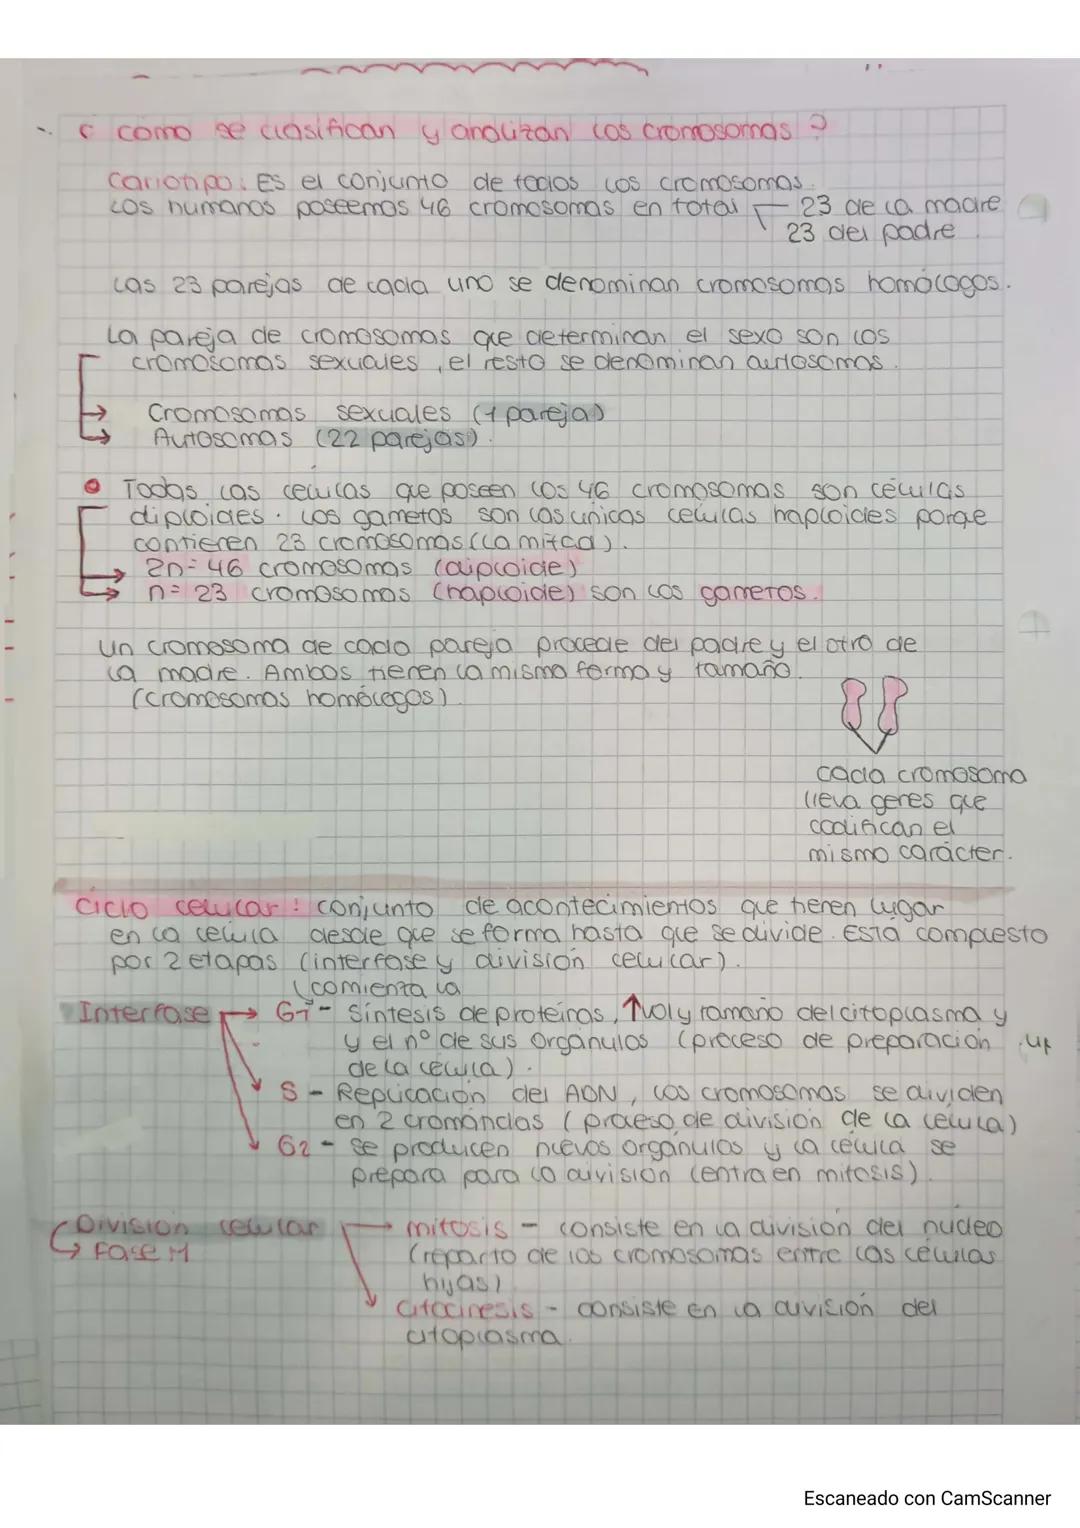 ¿ como se clasifican y analizan los cromosomas ?
Cariotipo: Es el conjunto de todos los cromosomas.
Los humanos poseemos 46 cromosomas en total 23 de la madre
23 del padre
Las 23 parejas de cada uno se denominan cromosomas homólogos.
La pareja de cromosomas que determinan el sexo son los
cromosomas sexuales, el resto se denominan autosomas.
→ Cromosomas sexuales (1 pareja)
→ Autosomas (22 parejas).
Todas las celulas que poseen los 46 cromosomas son células
diploides. Los gametos son las únicas celulas haploides porque
contienen 23 cromosomas (la mitad).
→ 2n= 46 cromosomas (diploide)
→ n= 23 cromosomas (haploide) son los gametos.
Un cromosoma de cada pareja procede del padre y el otro de
la madre. Ambos tienen la misma forma y tamaño.
(cromosomas homólogos).
cada cromosoma
lleva genes que
codifican el
mismo carácter.
Ciclo celular: conjunto de acontecimientos que tienen lugar
en la celula desde que se forma hasta que se divide. Está compuesto
por 2 etapas (interfase y división celular).
(comienza la
Interfase → G1 - Síntesis de proteínas, ↑ vol y tamaño del citoplasma y
y el nº de sus organulos (proceso de preparación
de la célula).
S - Replicación del ADN, los cromosomas se dividen
en 2 cromándas (proceso de división de la celula)
G2 - se producen nuevos orgánulos y la célula se
prepara para la división (entra en mitosis).
División celular → mitosis - consiste en la división del nucleo
→ Fase M (reparto de los cromosomas entre las células
hijas)
citocinesis - consiste en la división del
citoplasma.
Escaneado con CamScanner